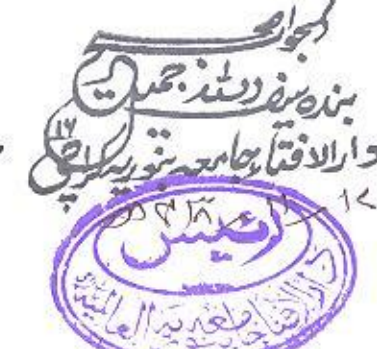 الجواب صحیح
بندہ سیف اللہ جمیل
دارالافتاء جامعہ بنوریہ کراچی
رئیس
دارالافتاء
العالمیة